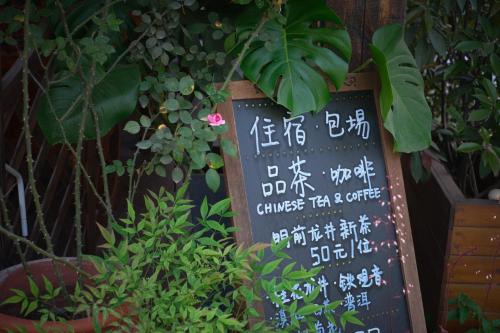 住宿·包場
品茶·咖啡
CHINESE TEA & COFFEE
明前龙井新茶
50元1位
铁观音
普洱